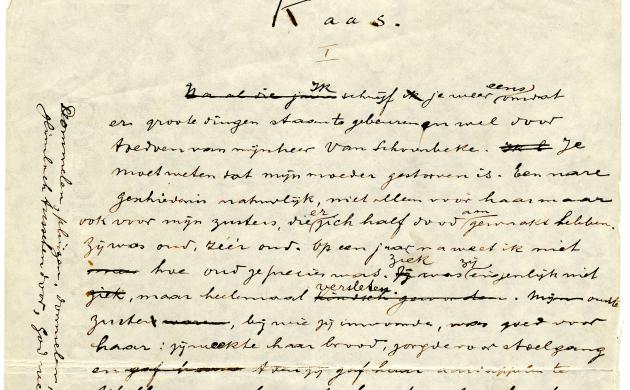 Kaas.
I
Na al die jaren Ik schrijf ik je weer eens omdat
er groote dingen staan te gebeuren en wel door
toedoen van mijnheer Van Schoonbeke. Je
moet weten dat mijn moeder gestorven is. Een nare
geschiedenis natuurlijk, niet alleen voor haar maar
ook voor mijn zusters, die er zich half dood aan gewaakt hebben.
Zij was oud, zéér oud. Op een jaar na weet ik niet
hoe oud ze precies was. Ziek Zij was zij eigenlijk niet
ziek, maar heelemaal versleten. Mijn oudste
zuster, bij wie zij inwoonde, was goed voor
haar: zij weekte haar brood, zorgde voor stoelgang
en gaf haar aardappelen te
Dommelen, dommelen,
glimlach tusschendoor, God